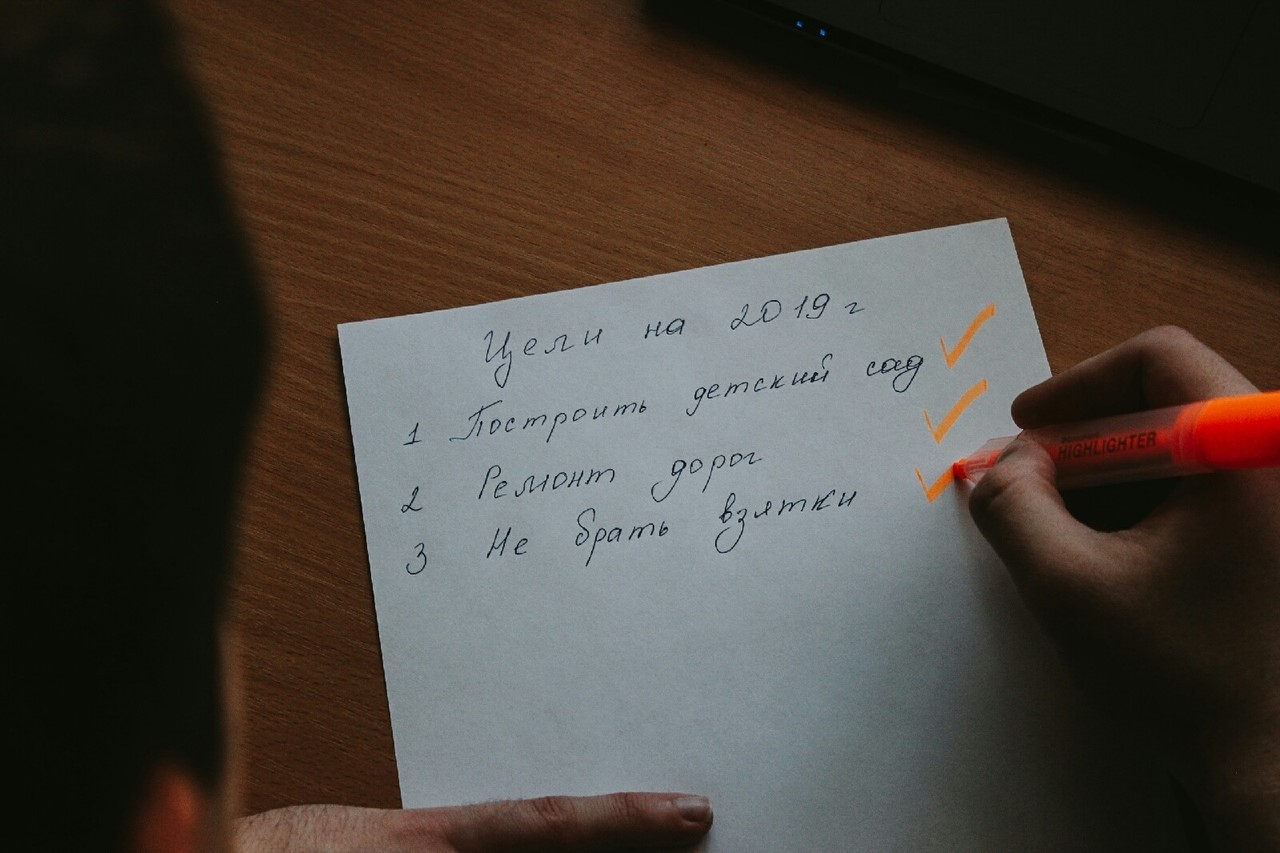 Цели на 2019 г
1 Построить детский сад
2 Ремонт дорог
3 Не брать взятки
HIGHLIGHTER